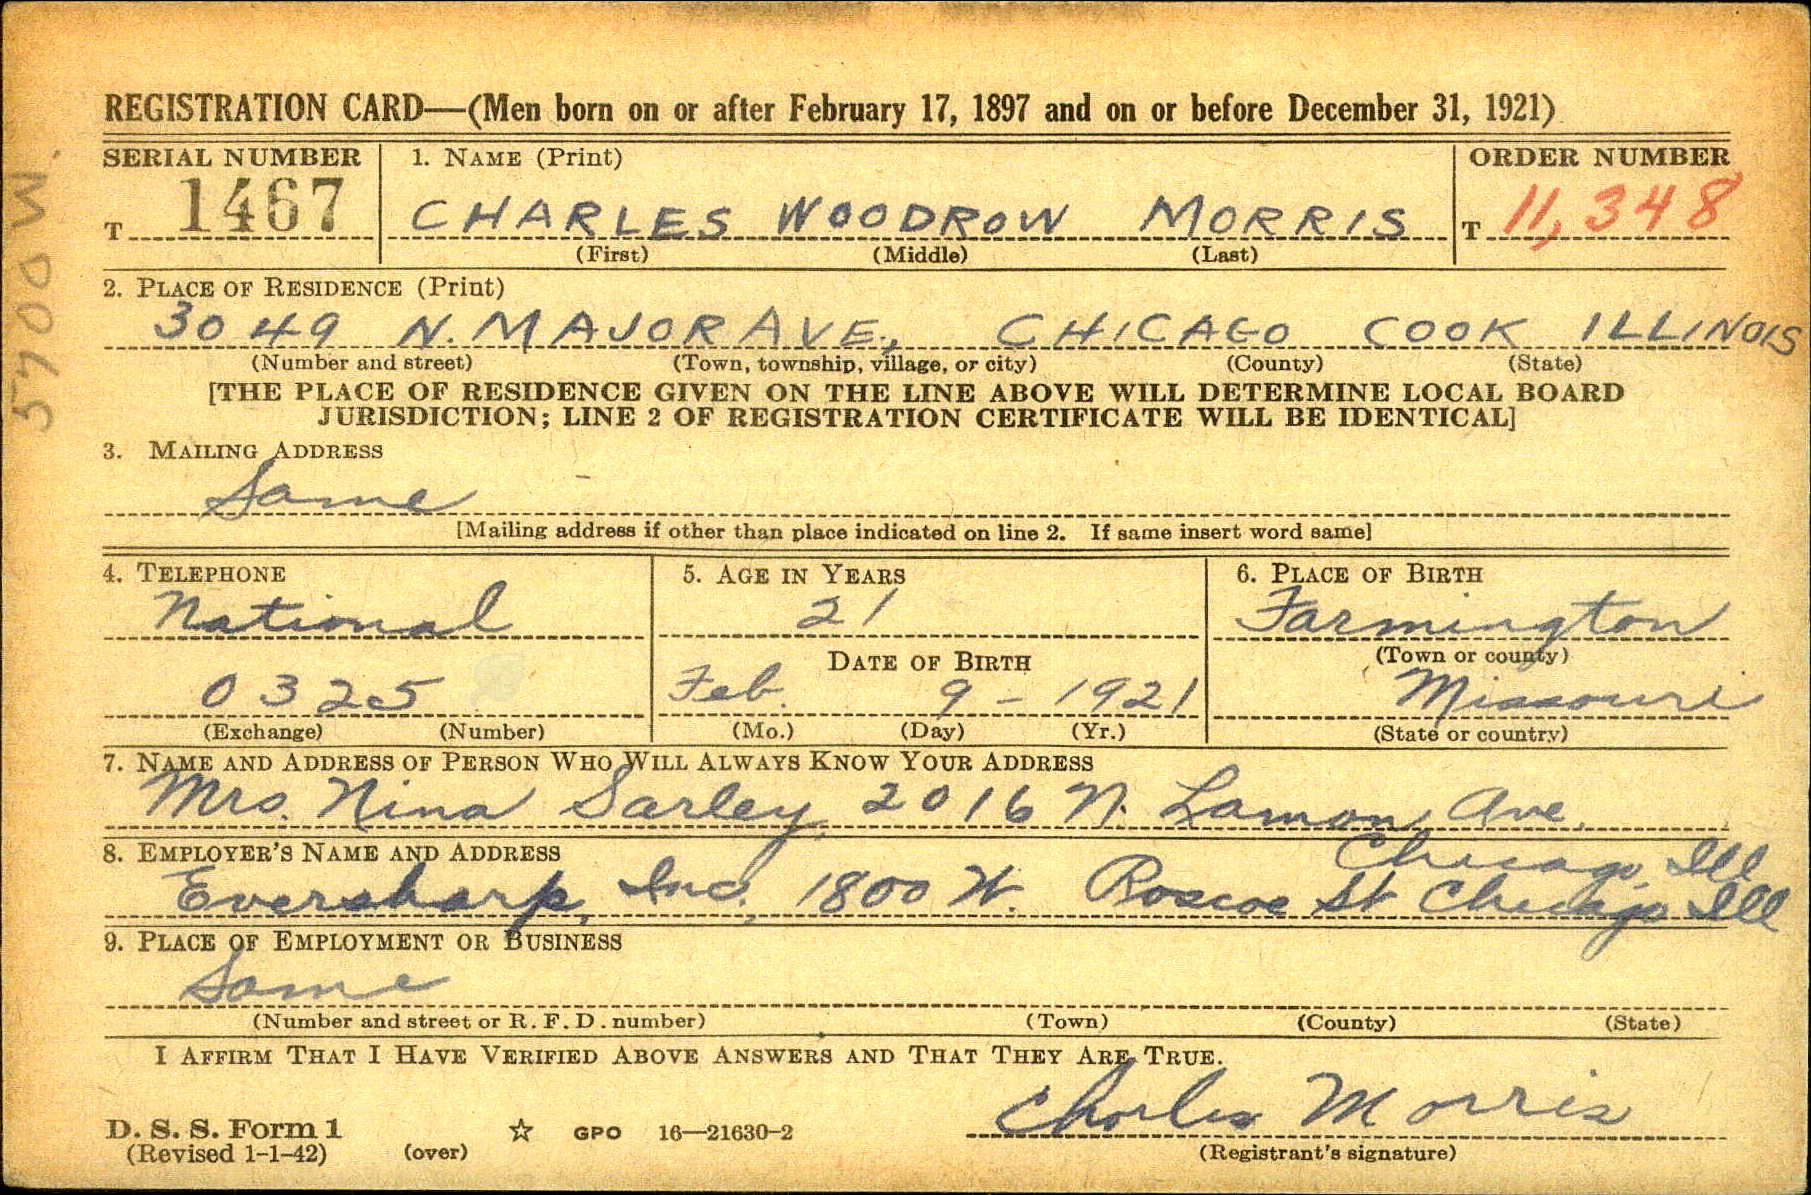 REGISTRATION CARD—(Men born on or after February 17, 1897 and on or before December 31, 1921)
SERIAL NUMBER 1. NAME (Print) ORDER NUMBER
T 1467 CHARLES WOODROW MORRIS T 11,348
(First) (Middle) (Last)
2. PLACE OF RESIDENCE (Print)
3049 N. MAJOR AVE, CHICAGO COOK ILLINOIS
(Number and street) (Town, township, village, or city) (County) (State)
[THE PLACE OF RESIDENCE GIVEN ON THE LINE ABOVE WILL DETERMINE LOCAL BOARD
JURISDICTION; LINE 2 OF REGISTRATION CERTIFICATE WILL BE IDENTICAL]
5700 W.
3. MAILING ADDRESS
Same
[Mailing address if other than place indicated on line 2. If same insert word same]
4. TELEPHONE 5. AGE IN YEARS 6. PLACE OF BIRTH
National 21 Farmington
DATE OF BIRTH (Town or county)
0325 Feb. 9 - 1921 Missouri
(Exchange) (Number) (Mo.) (Day) (Yr.) (State or country)
7. NAME AND ADDRESS OF PERSON WHO WILL ALWAYS KNOW YOUR ADDRESS
Mrs. Nina Sarley, 2016 N. Lamon Ave.
Chicago, Ill
8. EMPLOYER'S NAME AND ADDRESS
Eversharp, Inc., 1800 W. Roscoe St Chicago Ill
9. PLACE OF EMPLOYMENT OR BUSINESS
Same
(Number and street or R. F. D. number) (Town) (County) (State)
I AFFIRM THAT I HAVE VERIFIED ABOVE ANSWERS AND THAT THEY ARE TRUE.
Charles Morris
D. S. S. Form 1 ☆ GPO 16—21630-2
(Revised 1-1-42) (over) (Registrant's signature)